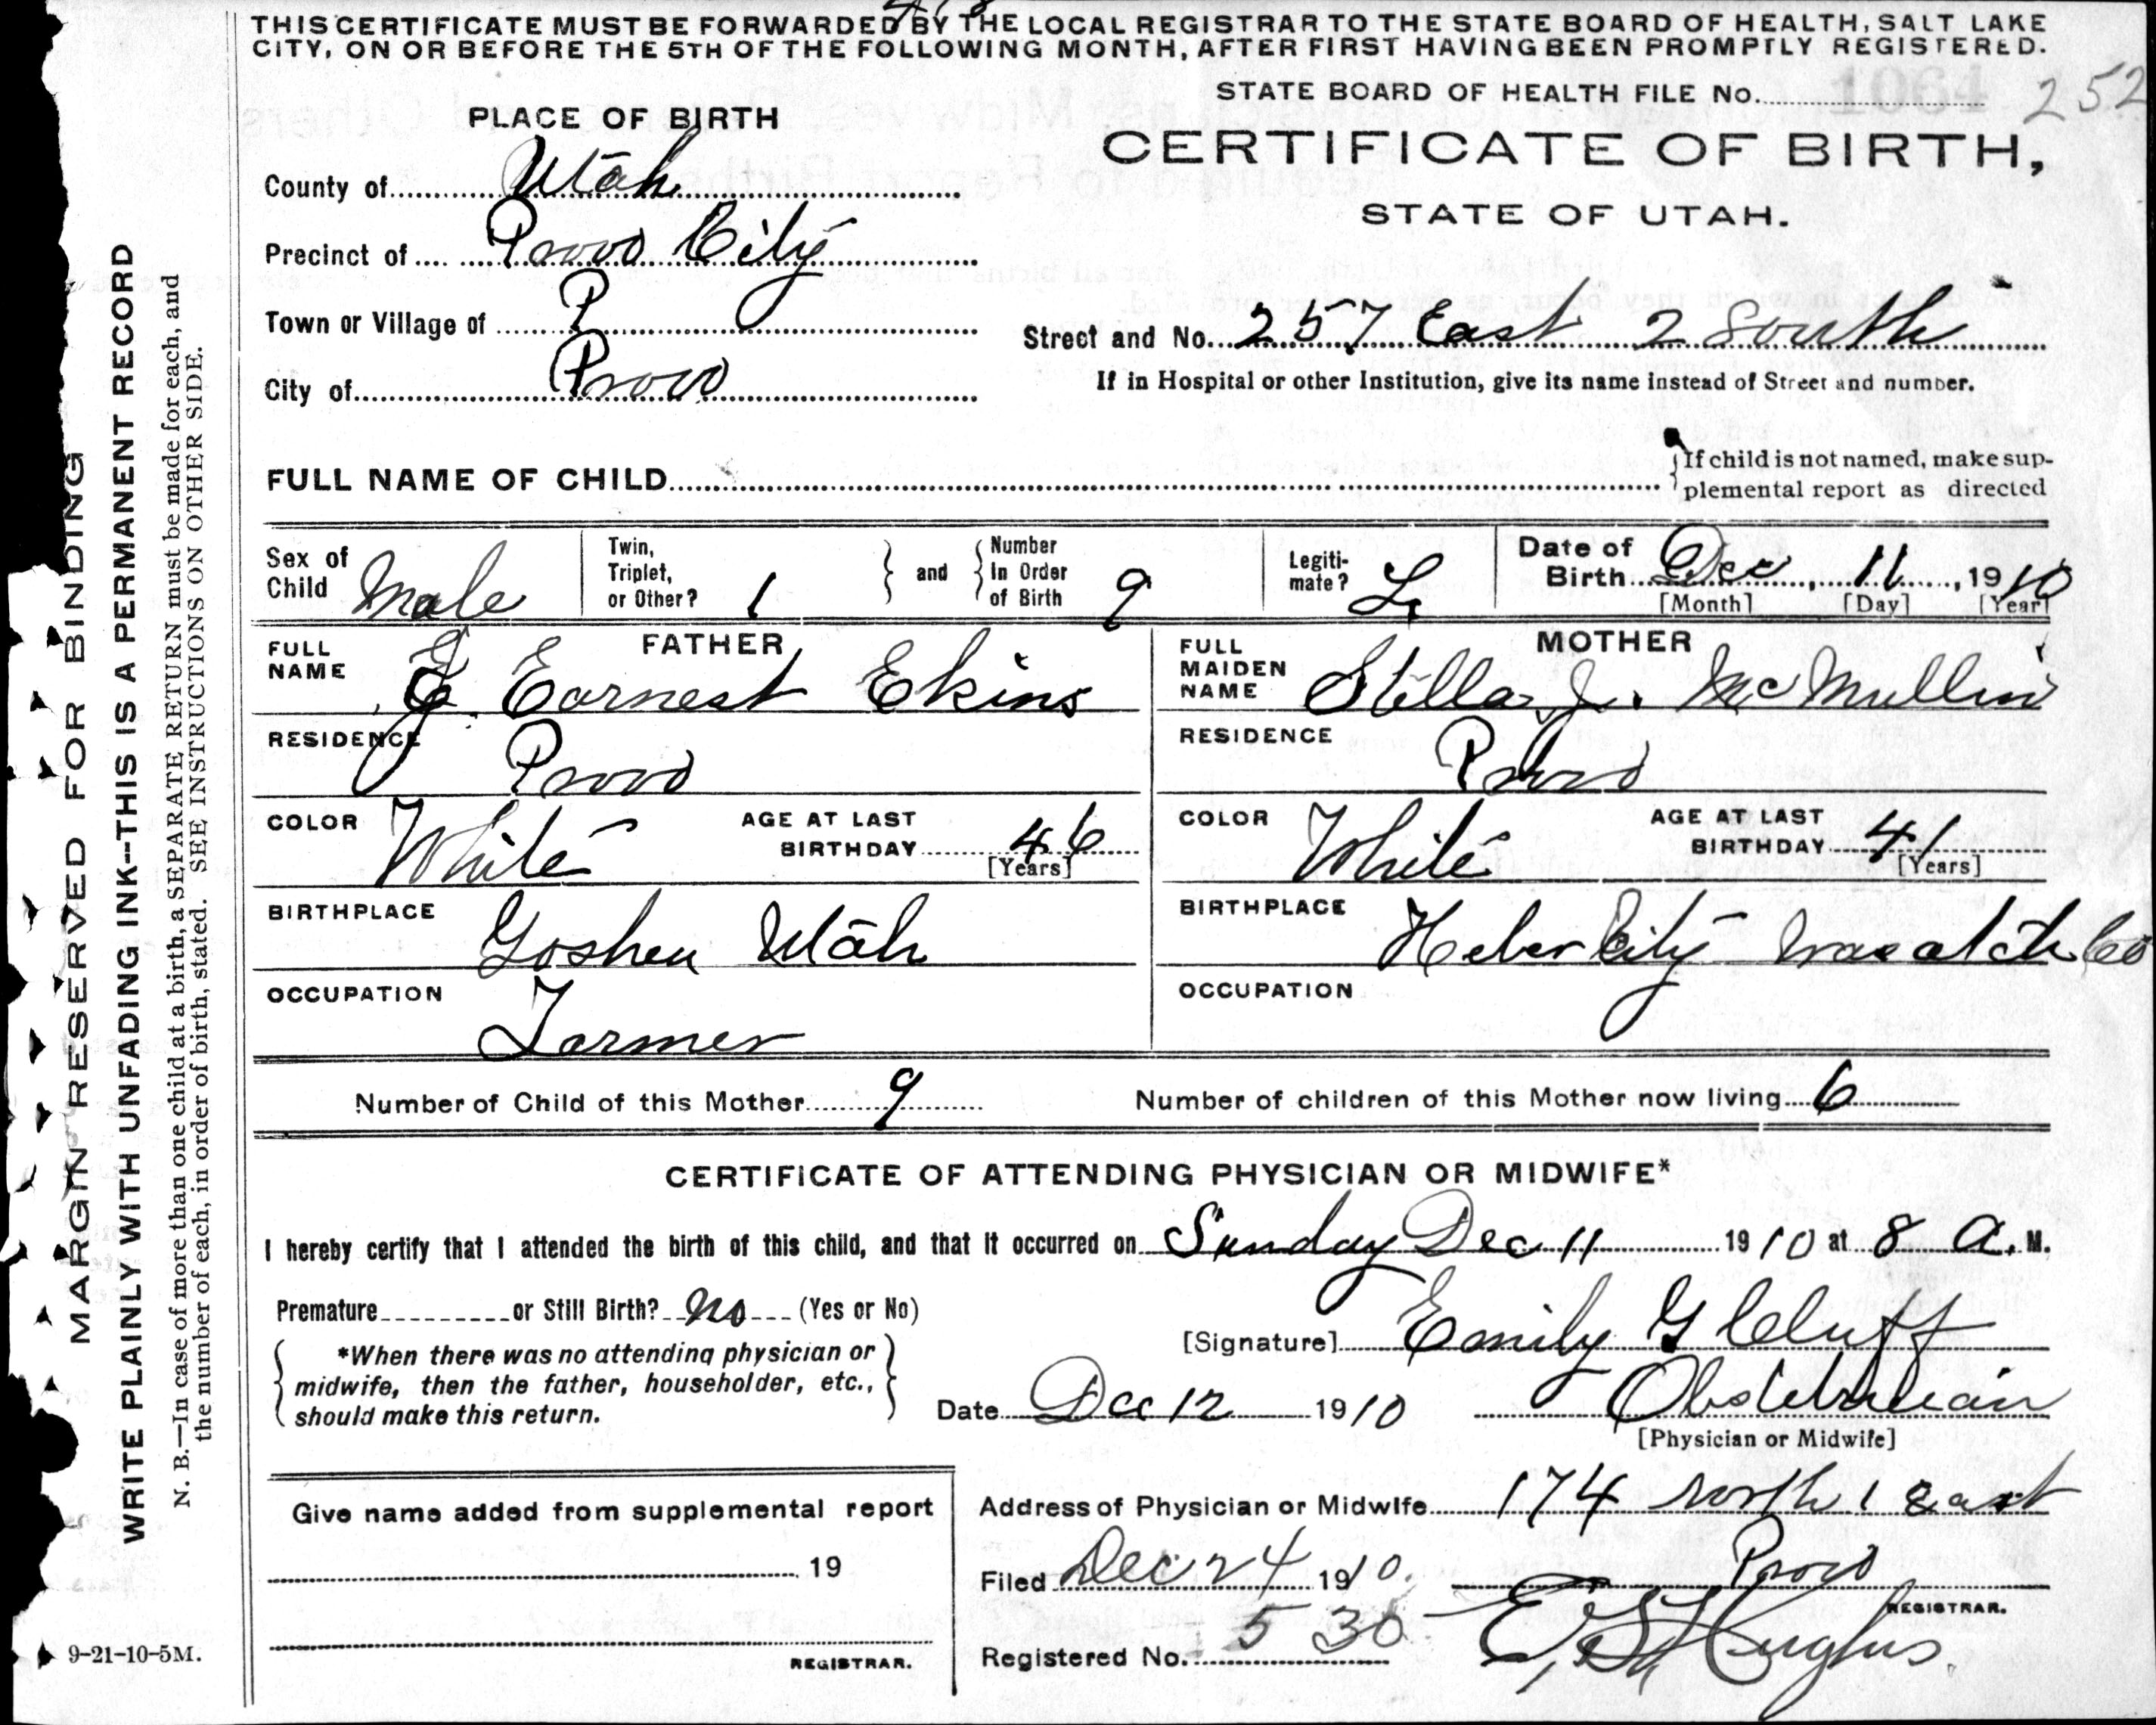 THIS CERTIFICATE MUST BE FORWARDED BY THE LOCAL REGISTRAR TO THE STATE BOARD OF HEALTH, SALT LAKE
CITY, ON OR BEFORE THE 5TH OF THE FOLLOWING MONTH, AFTER FIRST HAVING BEEN PROMPTLY REGISTERED.
STATE BOARD OF HEALTH FILE No. 1064 252
PLACE OF BIRTH
CERTIFICATE OF BIRTH,
STATE OF UTAH.
County of Utah
Precinct of Provo City
Town or Village of P
City of Provo
Street and No. 257 East 2 South
If in Hospital or other Institution, give its name instead of Street and number.
FULL NAME OF CHILD
If child is not named, make sup-
plemental report as directed
Sex of Child Male
Twin, Triplet, or Other? 1
and
Number In Order of Birth 9
Legiti-mate? L
Date of Birth Dec, 11, 1910
[Month] [Day] [Year]
FATHER
FULL NAME Earnest Ekins
RESIDENCE Provo
COLOR White AGE AT LAST BIRTHDAY 46
[Years]
BIRTHPLACE Goshen Utah
OCCUPATION Farmer
MOTHER
FULL MAIDEN NAME Stella J. McMullin
RESIDENCE Provo
COLOR White AGE AT LAST BIRTHDAY 41
[Years]
BIRTHPLACE Heber City Wasatch Co
OCCUPATION
Number of Child of this Mother 9 Number of children of this Mother now living 6
CERTIFICATE OF ATTENDING PHYSICIAN OR MIDWIFE*
I hereby certify that I attended the birth of this child, and that it occurred on Sunday Dec 11 1910 at 8 A. M.
Premature or Still Birth? No (Yes or No)
*When there was no attending physician or
midwife, then the father, householder, etc.,
should make this return.
[Signature] Emily G Cluff
Date Dec 12 1910 Obstetrician
[Physician or Midwife]
Give name added from supplemental report
19
REGISTRAR.
Address of Physician or Midwife 174 North 1 East
Provo
Filed Dec 24 1910.
REGISTRAR.
Registered No. 530
Hughes.
MARGIN RESERVED FOR BINDING
WRITE PLAINLY WITH UNFADING INK--THIS IS A PERMANENT RECORD
N. B.—In case of more than one child at a birth, a SEPARATE RETURN must be made for each, and
the number of each, in order of birth, stated. SEE INSTRUCTIONS ON OTHER SIDE.
9-21-10-5M.